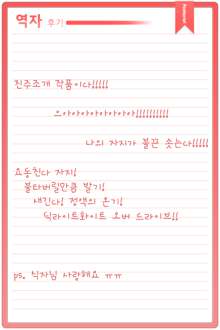 역자 후기
진주조개 작품이다!!!!!
으아아아아아아아아!!!!!!!!!!
나의 자지가 불끈 솟는다!!!!!
요동친다 자지!
불타버릴만큼 발기!
새긴다! 정액의 온기!
딕라이트화이트 오버 드라이브!!
ps. 식자님 사랑해요 ㅠㅠ